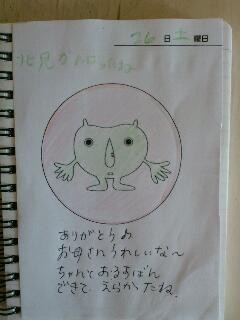 26日土曜日
ありがとうね
お母さんうれしいな〜
ちゃんとおるすばん
できて えらかったね。